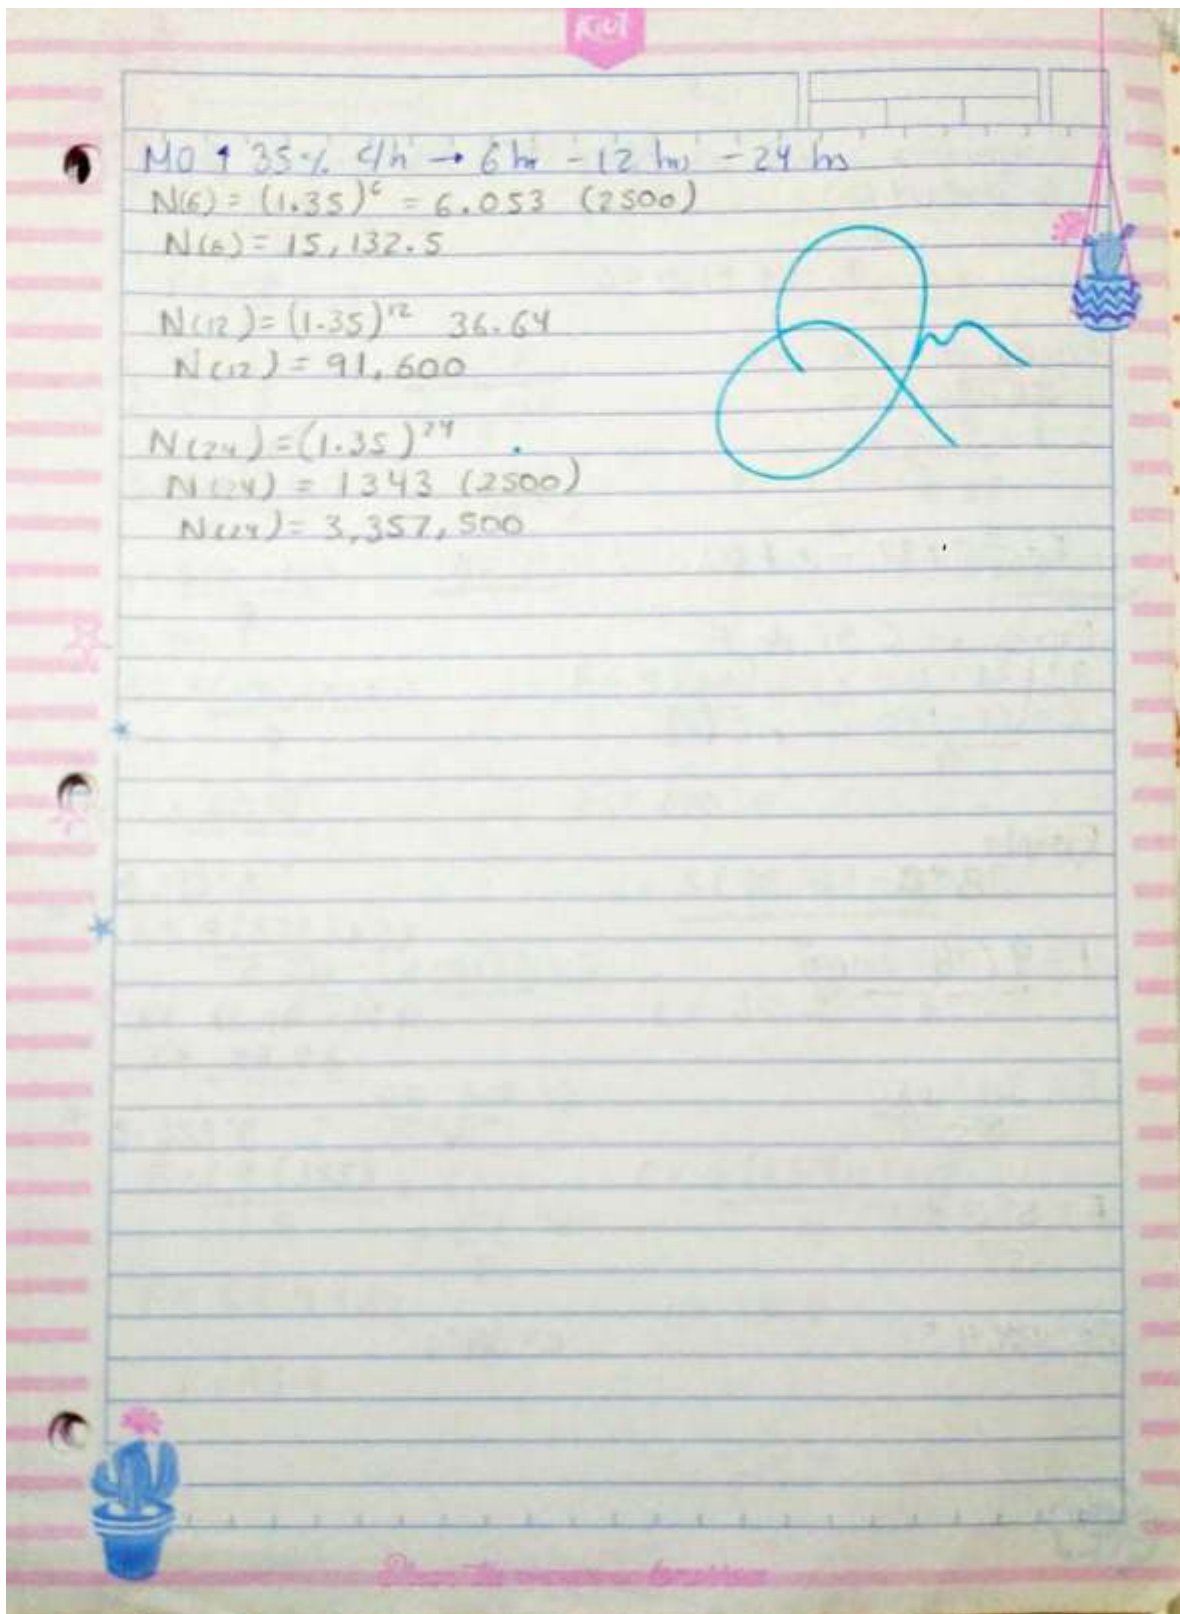 Kiut
MO ↑ 35 % c/h → 6 hr - 12 hrs - 24 hrs
N(6) = (1.35)⁶ = 6.053 (2500)
N(6) = 15,132.5
N(12) = (1.35)¹² 36.64
N(12) = 91,600
N(24) = (1.35)²⁴
N(24) = 1343 (2500)
N(24) = 3,357,500